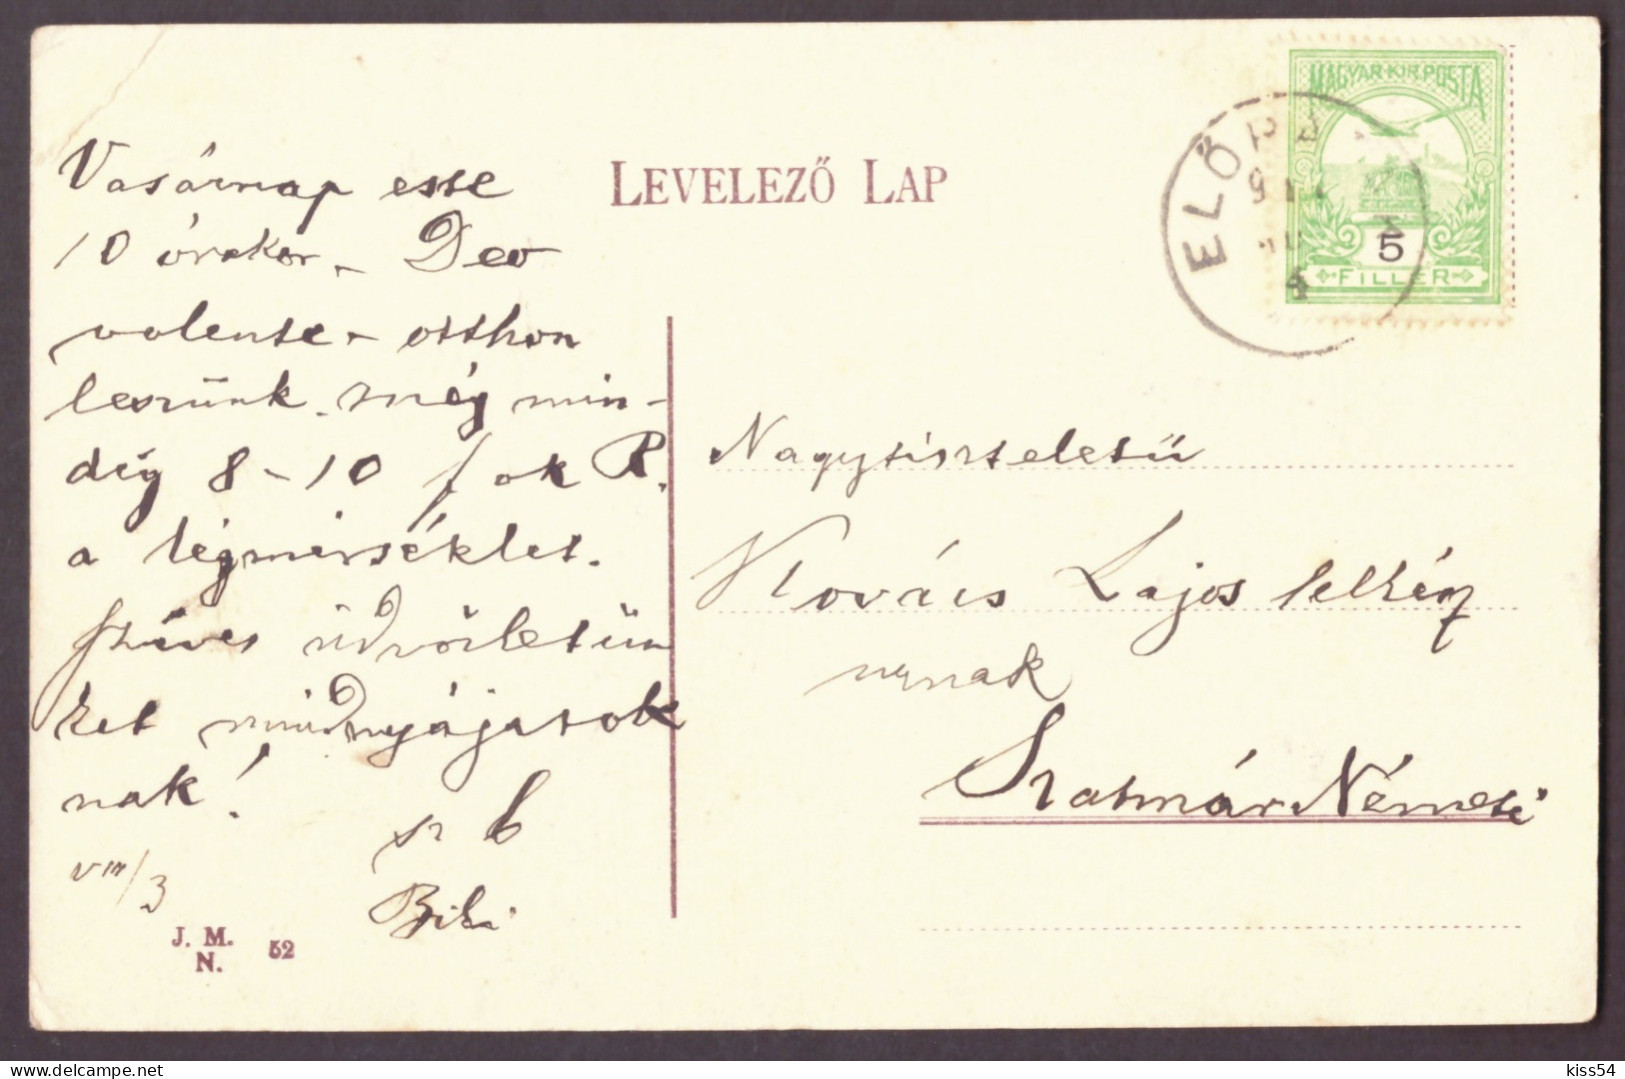 LEVELEZŐ LAP
MAGYAR·KIR·POSTA
5
FILLER
ELŐPA
Vasárnap este
10 órakor - Deo
volente - otthon
leszünk. még min-
dég 8-10 fok R.
a légmérséklet.
Szíves üdvözletün
ket mindnyájatok
nak!
VIII/3
J. M.
N. 52
Nagytiszteletű
Kovács Lajos lelkész
urnak
Szatmár Németi
kiss54
delcampe.net